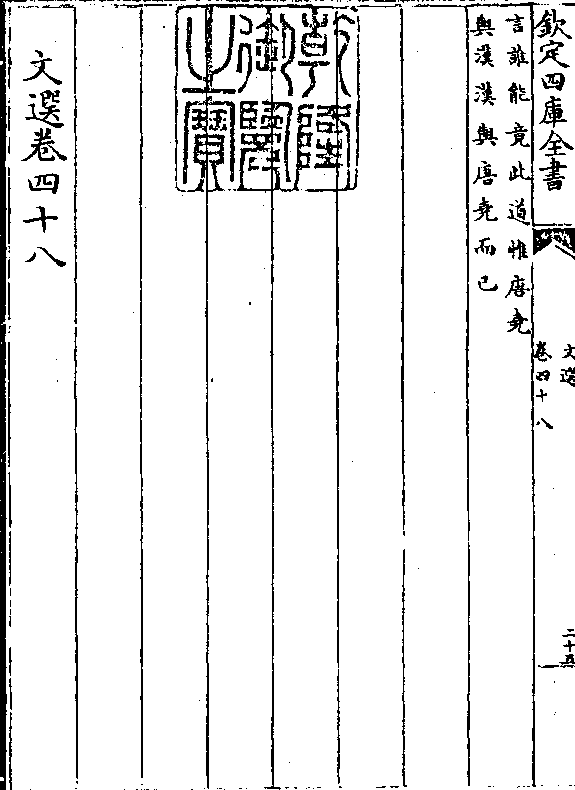 欽定四庫全書
文選
卷四十八
二十五
言誰能竟此道惟唐堯
與漢漢與唐堯而已
乾隆
御覽
之寶
文選卷四十八